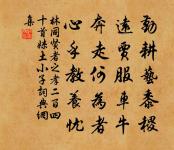 勤耕藝黍稷
遠賈服車牛
奔走何為者
心乎教養忱
林同賢者之孝二百四
十首妹土小子詞典網
集